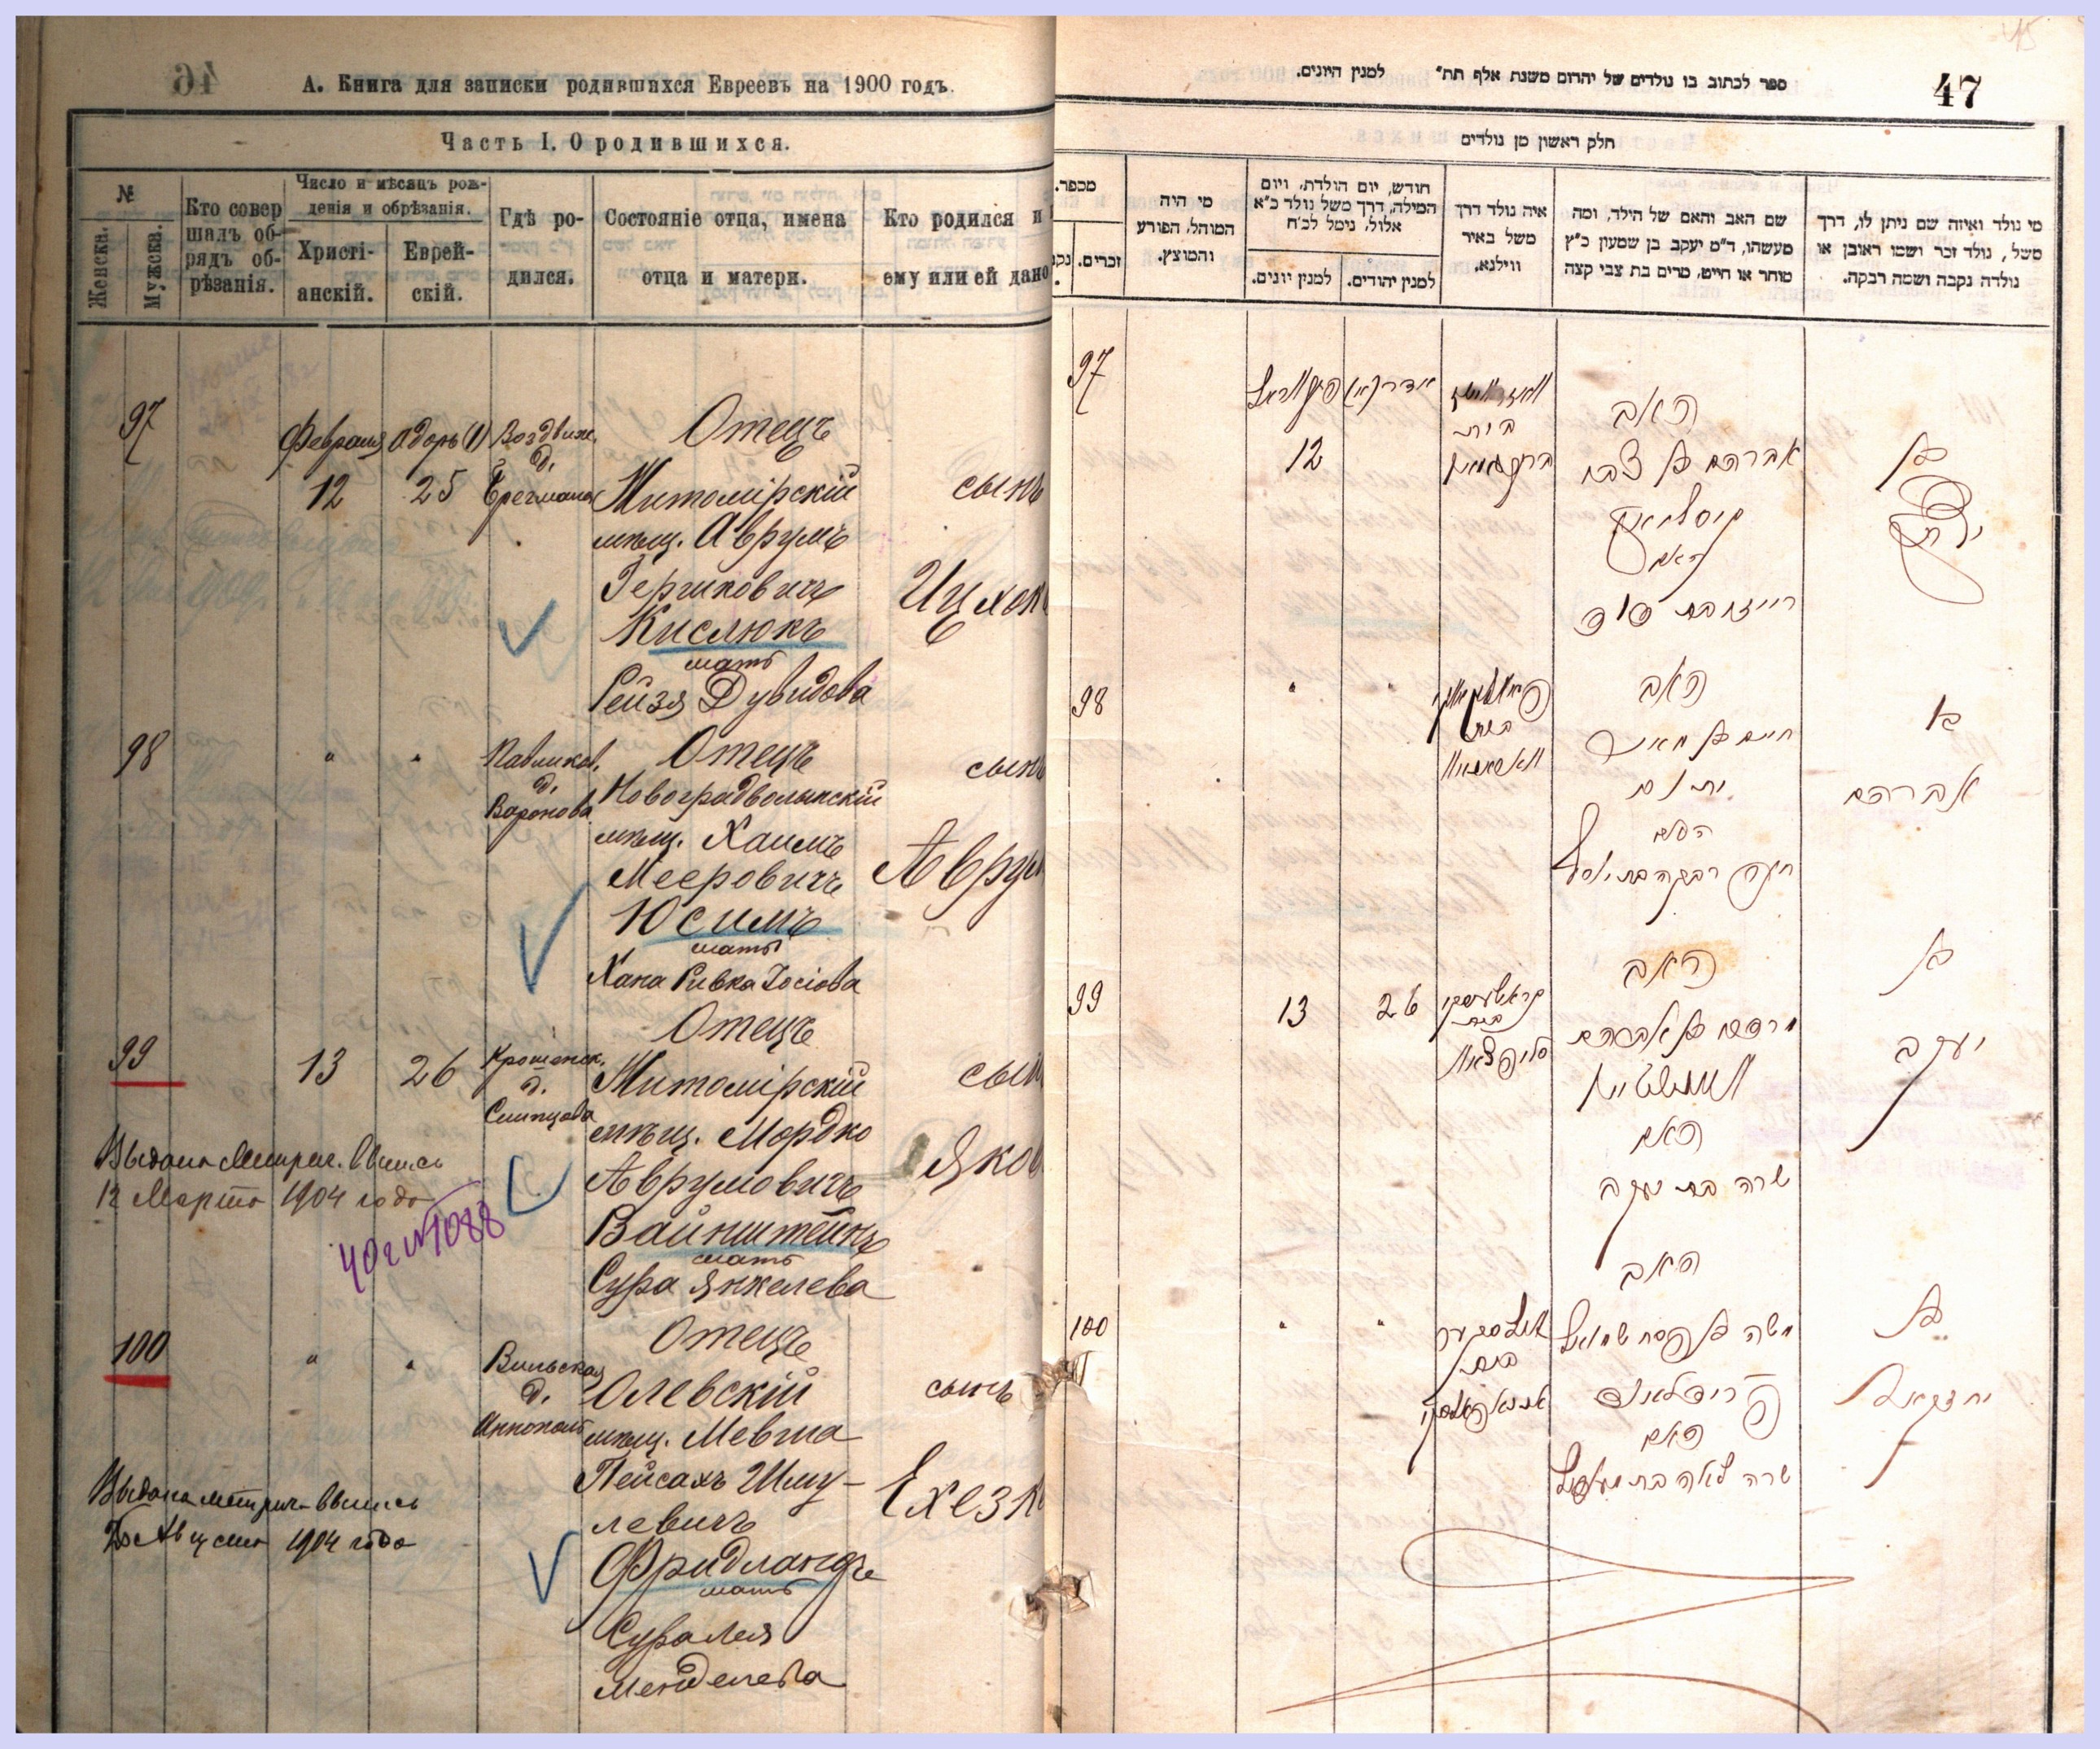 А. Книга для записки родившихся Евреевъ на 1900 годъ.
Часть I. О родившихся.
№
Женска.
Мужска.
Кто совер
шалъ об-
рядъ об-
рѣзанія.
Число и мѣсяцъ рож-
денія и обрѣзанія.
Христі-
анскій.
Еврей-
скій.
Гдѣ ро-
дился.
Состояніе отца, имена
отца и матери.
Кто родился и
ему или ей дано
97
Февраля
12
Адоръ (1)
25
Воздвиж.
д.
Отецъ
Житомірскій
мѣщ. Аврумъ
Гершковичъ
Кислюкъ
мать
Рейзя Дувидова
сынъ
Ицхокъ
98
"
"
Павликов.
д.
Воронова
Отецъ
Новоградволынскій
мѣщ. Хаимъ
Мееровичъ
Юсимъ
мать
Хана Ривка Іосіова
сынъ
Аврум
99
13
26
Крошенск.
д.
Слипцова
Отецъ
Житомірскій
мѣщ. Мордко
Аврумовичъ
Вайнштейнъ
мать
Сура Янкелева
сын
Яков
Выдана Метрич. Выпись
12 Марта 1904 года
100
"
"
Вильская
д.
Отецъ
Олевскій
мѣщ. Мевша
Пейсахъ Шму-
левичъ
Фридландъ
мать
Сура Лея
Менделева
сынъ
Ехезк
Выдана метрич. Выпись
Августа 1904 года
47
ספר לכתוב בו נולדים של יהדום משנת אלף תת״ למנין היונים.
חלק ראשון מן נולדים
מספר.
זכרים.
מי היה
המוהל, הפורע
והמוצץ.
חודש, יום הולדת, ויום
המילה, דרך משל נולד כ״א
אלול, נימל לכ״ח
למנין יונים.
למנין יהודים.
איה נולד דרך
משל באיר
ווילנא.
שם האב והאם של הילד, ומה
מעשהו, ד״מ יעקב בן שמעון כ״ץ
סוחר או חייט, מרים בת צבי קצה
מי נולד ואיזה שם ניתן לו, דרך
משל, נולד זכר ושמו ראובן או
נולדה נקבה ושמה רבקה.
97
12
בית
האב
אברהם בן צבי
האם
בן
98
"
"
בית
האב
חיים בן מאיר
האם
חנה רבקה בת יוסף
בן
אברהם
99
13
26
בית
האב
מרדכי בן אברהם
האם
שרה בת יעקב
בן
יעקב
100
"
"
בית
האב
משה בן פסח שמואל
פרידלאנד
האם
שרה לאה בת מענדיל
בן
יחזקאל